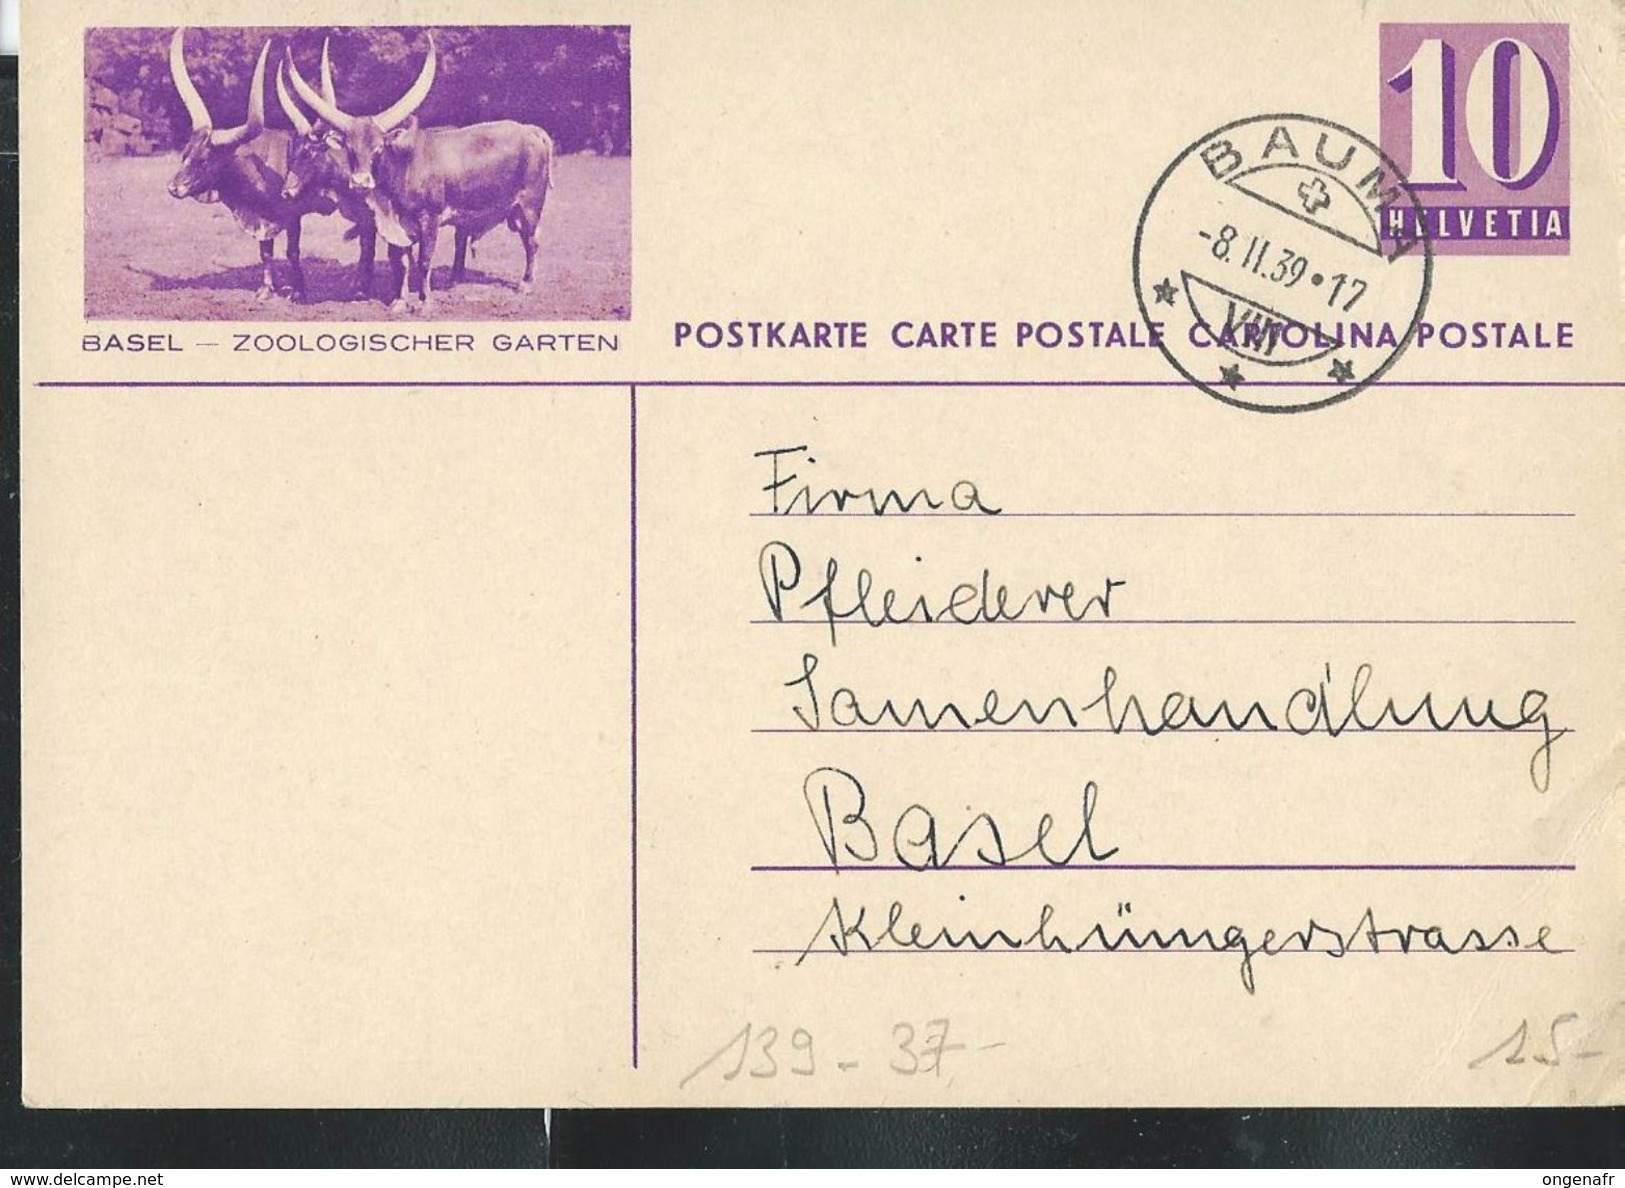 10
HELVETIA
BAUMA
-8.II.39•17
VIII
BASEL — ZOOLOGISCHER GARTEN
POSTKARTE CARTE POSTALE CARTOLINA POSTALE
Firma
Pfleiderer
Samenhandlung
Basel
Kleinhüningerstrasse
139-37-
15-
https://www.delcampe.net
ongenafr